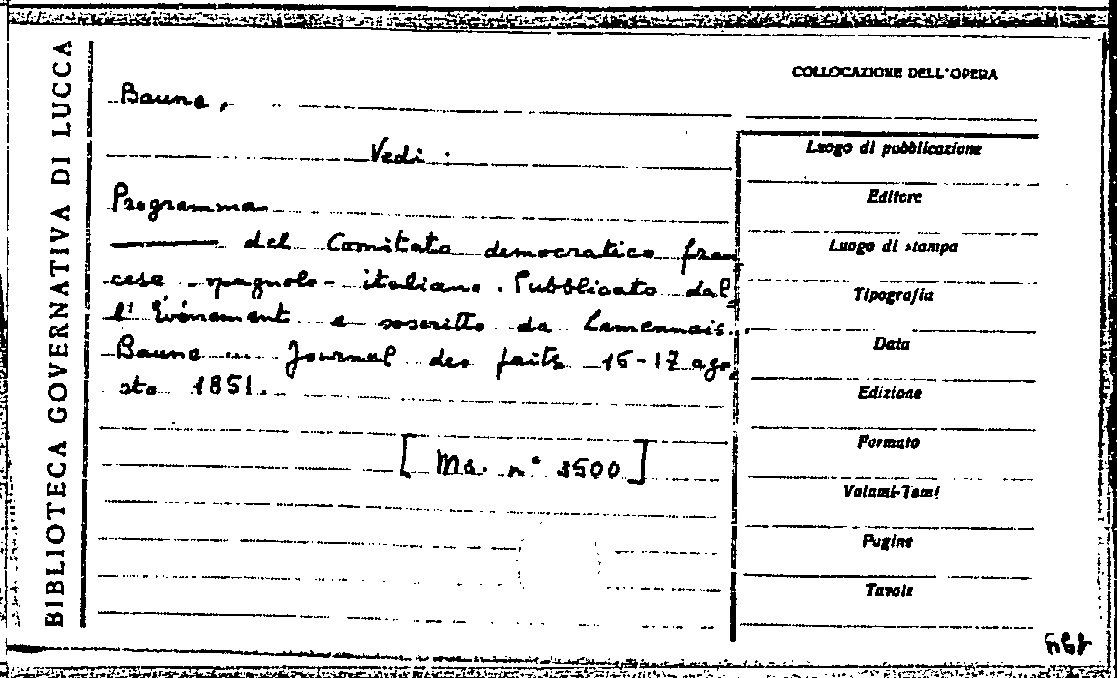 BIBLIOTECA GOVERNATIVA DI LUCCA
COLLOCAZIONE DELL'OPERA
Baune,
Vedi:
Programma
del Comitato democratico fran
cese-spagnolo-italiano. Pubblicato dal
l'Evénement e soscritto da Lamennais...
Baune... Journal des faits 16-17 ago
sto 1851.
[Ms. n° 3500]
Luogo di pubblicazione
Editore
Luogo di stampa
Tipografia
Data
Edizione
Formato
Volumi-Tomi
Pagine
Tavole